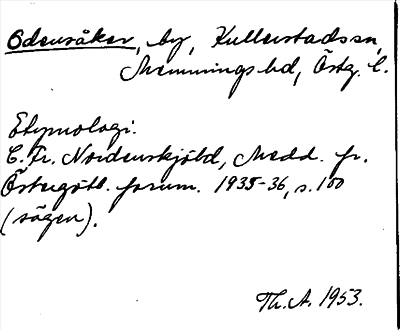 Odensåker, by, Kullerstads sn,
Memmings hd, Östg. l.
Etymologi.
C. Fr. Nordenskjöld, Medd. fr.
Östergötl. fornm. 1935-36, s. 100
(sägen).
Th. A. 1953.